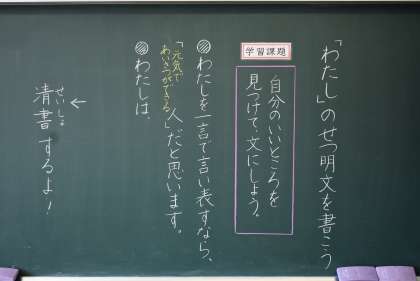 「わたし」のせつ明文を書こう
学習課題
自分のいいところを
見つけて、文にしよう。
◎わたしを一言で言い表すなら、
「元気で
あいさつができる
人」だと思います。
◎わたしは、
←
せいしょ
清書するよ!